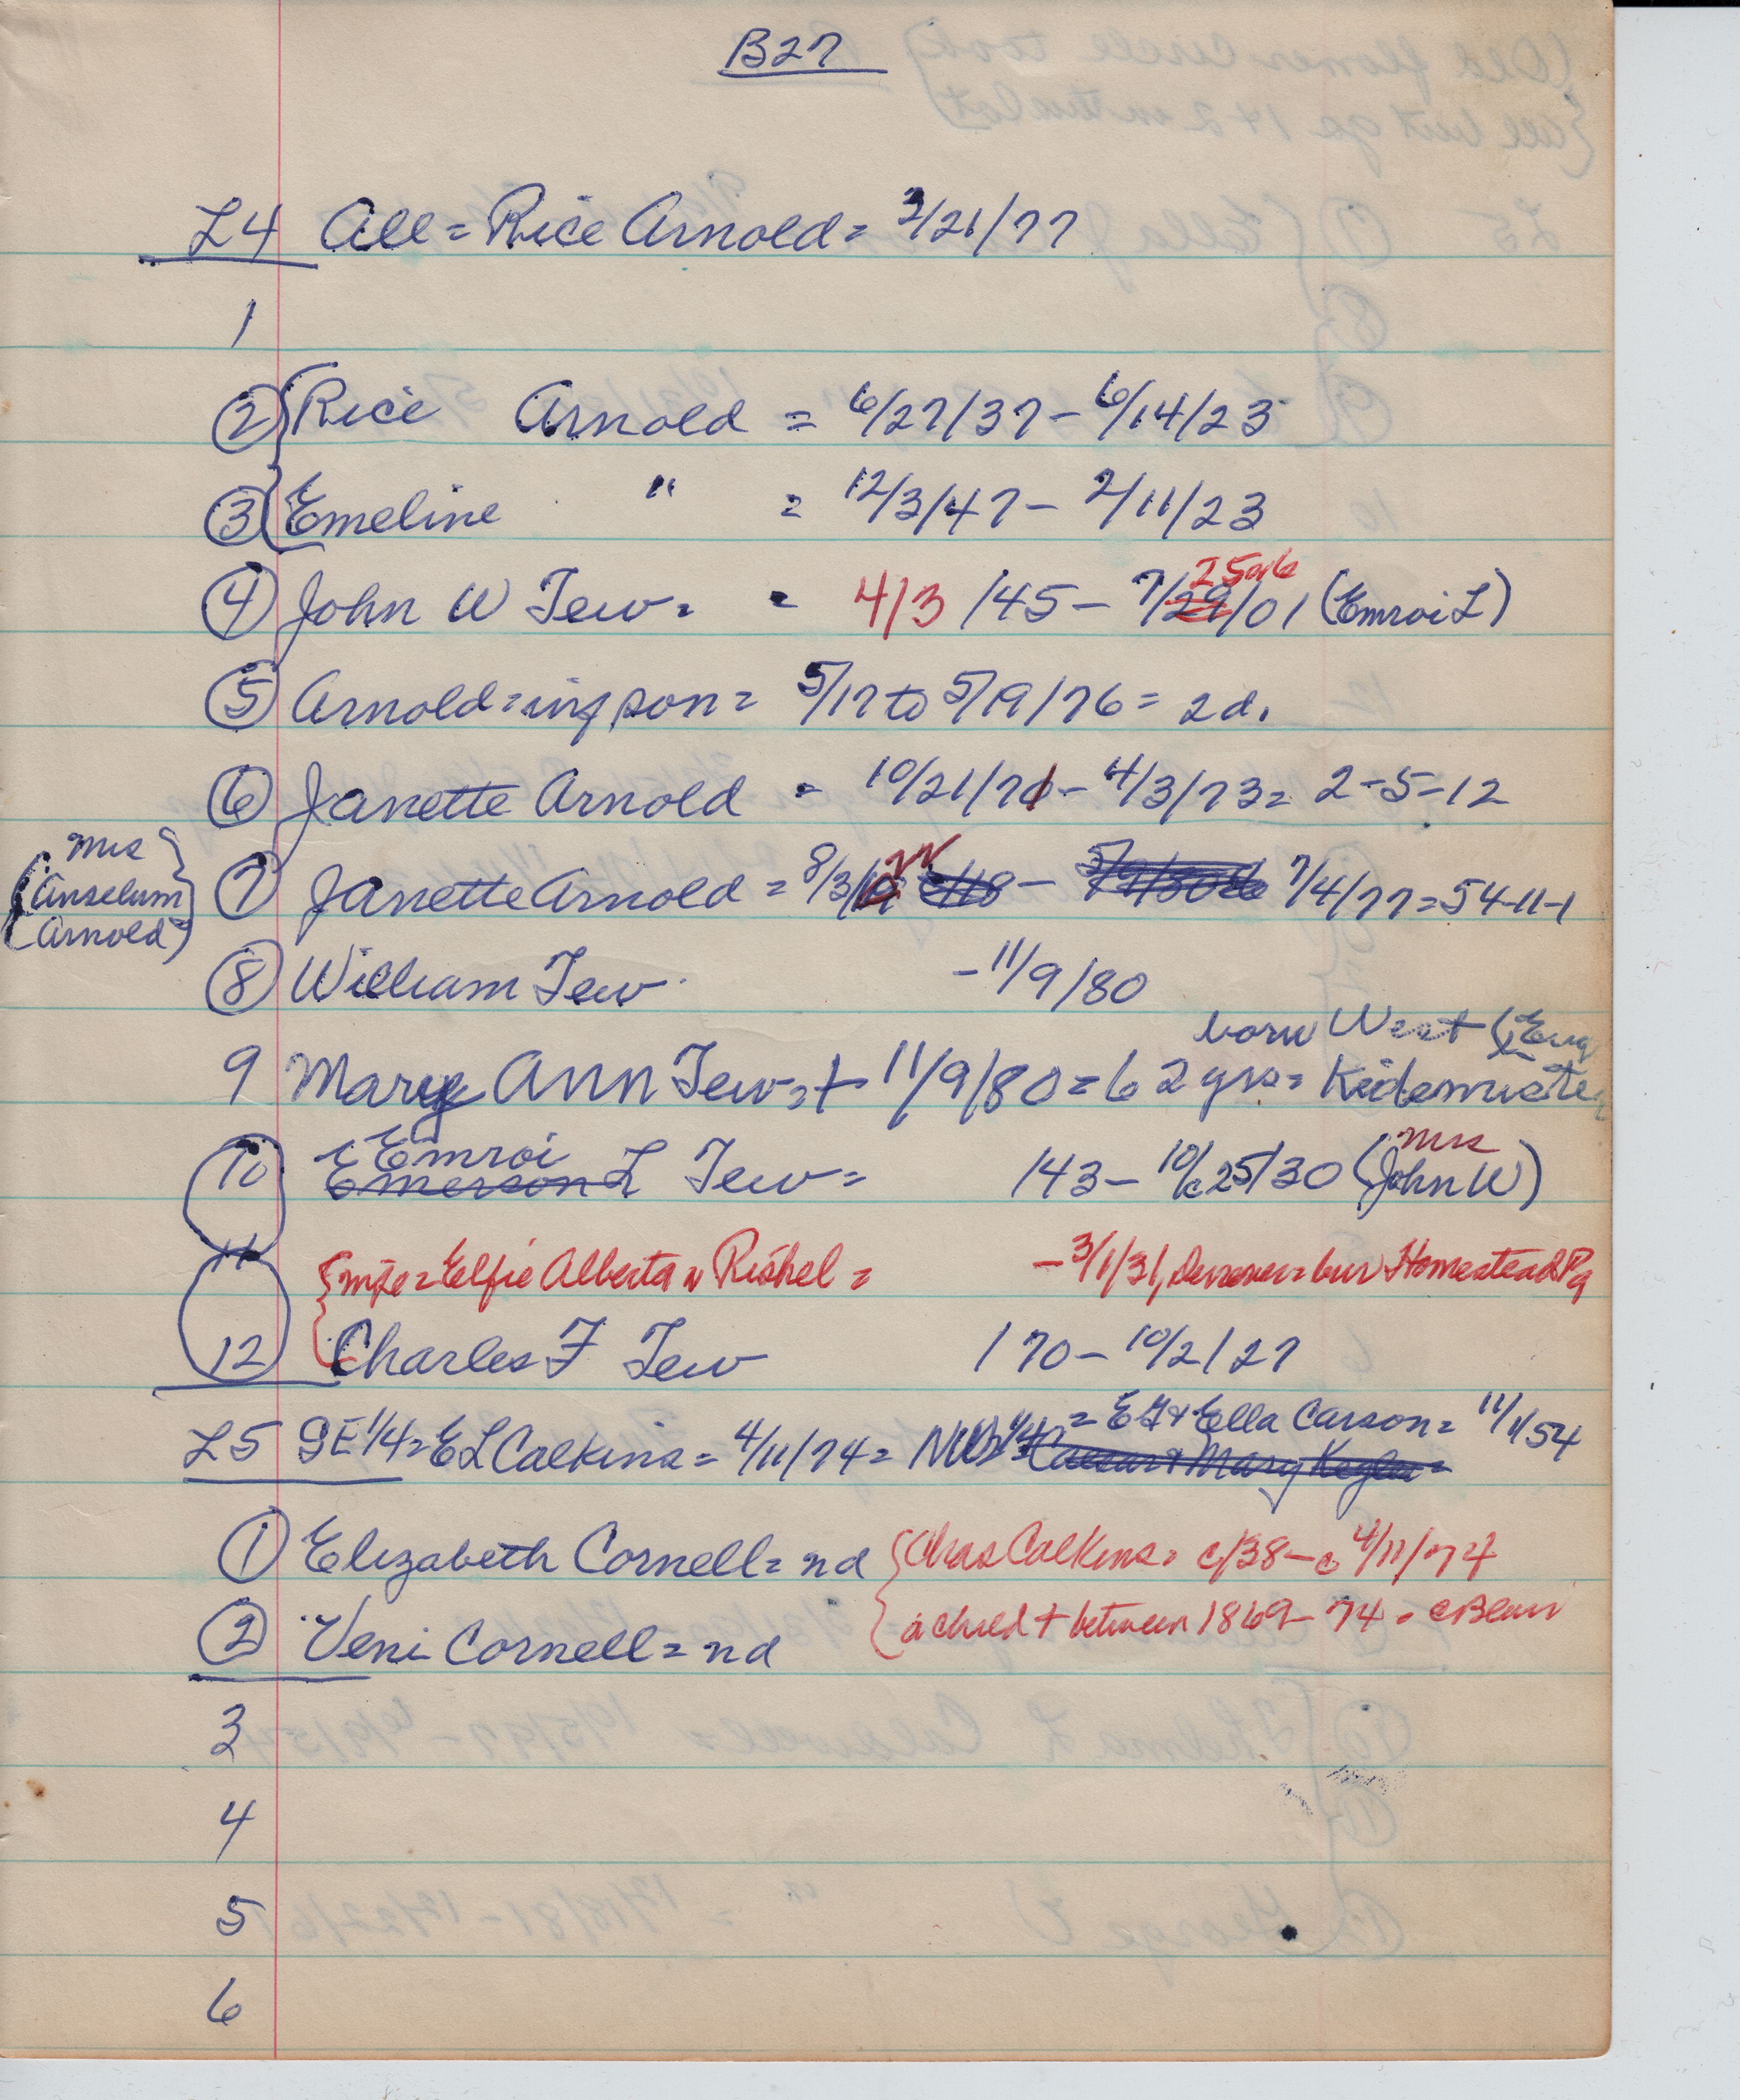 B27
L4 All = Rice Arnold = 3/21/77
1
2 Rice Arnold = 6/27/37 - 6/14/23
3 Emeline " = 12/3/47 - 2/11/23
4 John W Tew = = 4/3/45 - 7/29/01 (Emroi L)
5 Arnold = inf son = 5/17 to 5/19/76 = 2d.
6 Janette Arnold = 10/21/71 - 4/3/73 = 2-5-12
Mrs
(Anselum
Arnold)
7 Janette Arnold = 8/3/ - 7/4/77 = 54-11-1
8 William Tew - 11/9/80
born West (Eng
9 Mary Ann Tew = + 11/9/80 = 62 yrs =
Emroi mrs
10 Emerson L Tew = 143 - 10/25/30 (John W)
11 Elfie Alberta Rishel = - 3/1/31, bur Homestead Pa
12 Charles F Tew 170 - 10/2/27
= E & Ella Carson = 11/1/54
L5 SE 1/4 = EL Calkins = 4/11/74 = NW 1/4 = Mary
1 Elizabeth Cornell = nd {Chas Calkins = c/38 - c 4/11/74
2 Veni Cornell = nd a child + between 1869 - 74 =
3
4
5
6